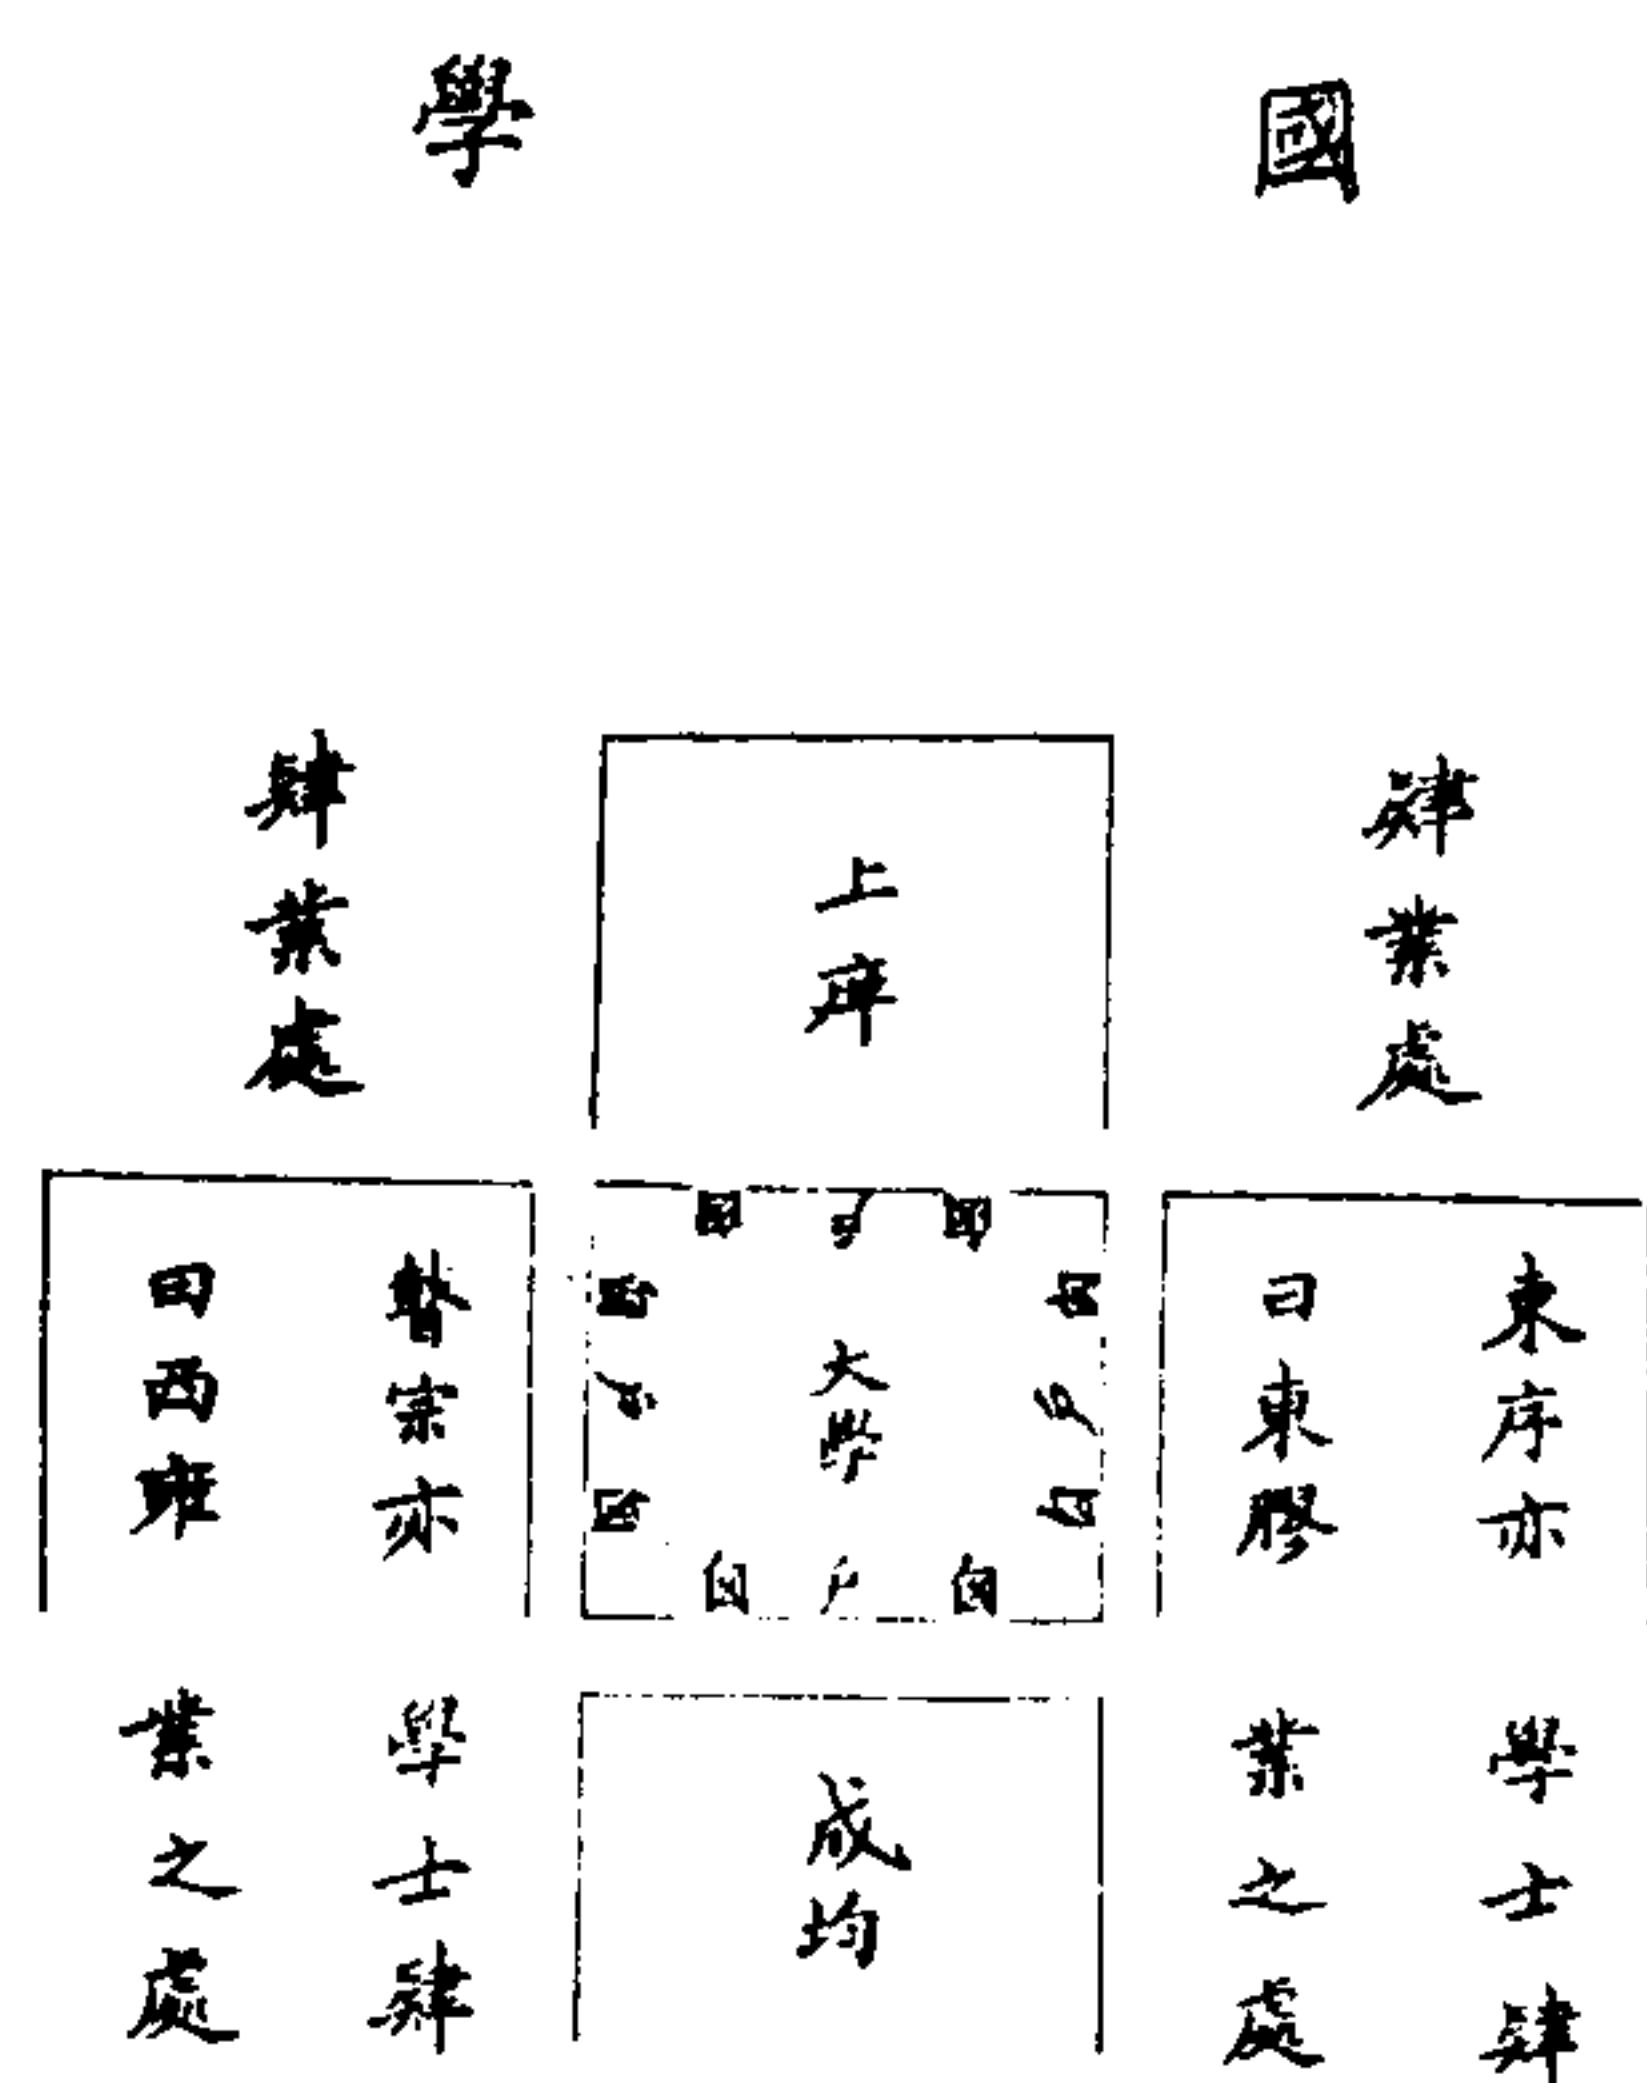 國學
肄業處
上庠
肄業處
東序亦
曰東膠
大學
牖戶牖
牖戶牖
牖戶牖
牖戶牖
瞽宗亦
曰西雍
學士肄
業之處
成均
學士肄
業之處